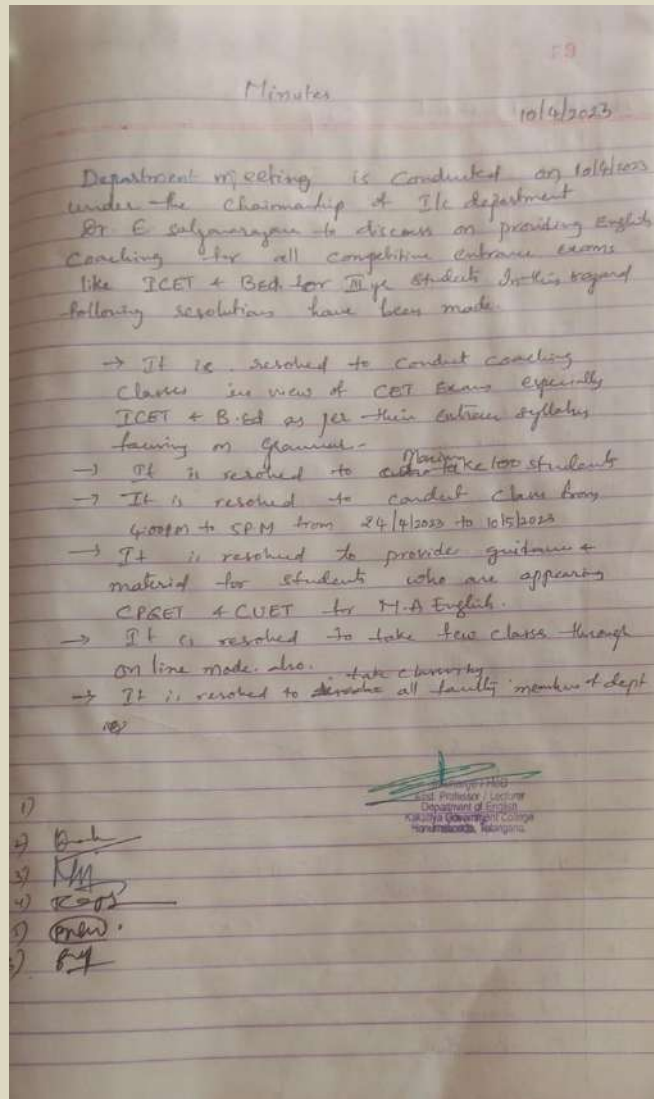 Minutes
10/4/2023
Department meeting is conducted on 10/4/2023
under the chairmanship of I/c department
Dr. E Satyanarayana to discuss on providing English
Coaching for all competitive entrance exams
like ICET & BEd. for III yr students In this regard
following resolutions have been made.
→ It is resolved to conduct coaching
classes in view of CET Exams especially
ICET & B.Ed as per their entrance syllabus
focusing on grammar.
→ It is resolved to take 100 students
→ It is resolved to conduct class from
4:00PM to 5P.M from 24/4/2023 to 10/5/2023
→ It is resolved to provide guidance &
material for students who are appearing
CPGET & CUET for M.A English.
→ It is resolved to take few classes through
on line mode. also.
→ It is resolved to take classes by all faculty members of dept
Incharge / HoD
Asst. Professor / Lecturer
Department of English
Kakatiya Government College
Hanumakonda, Telangana.
1)
2)
3)
4)
5)
6)